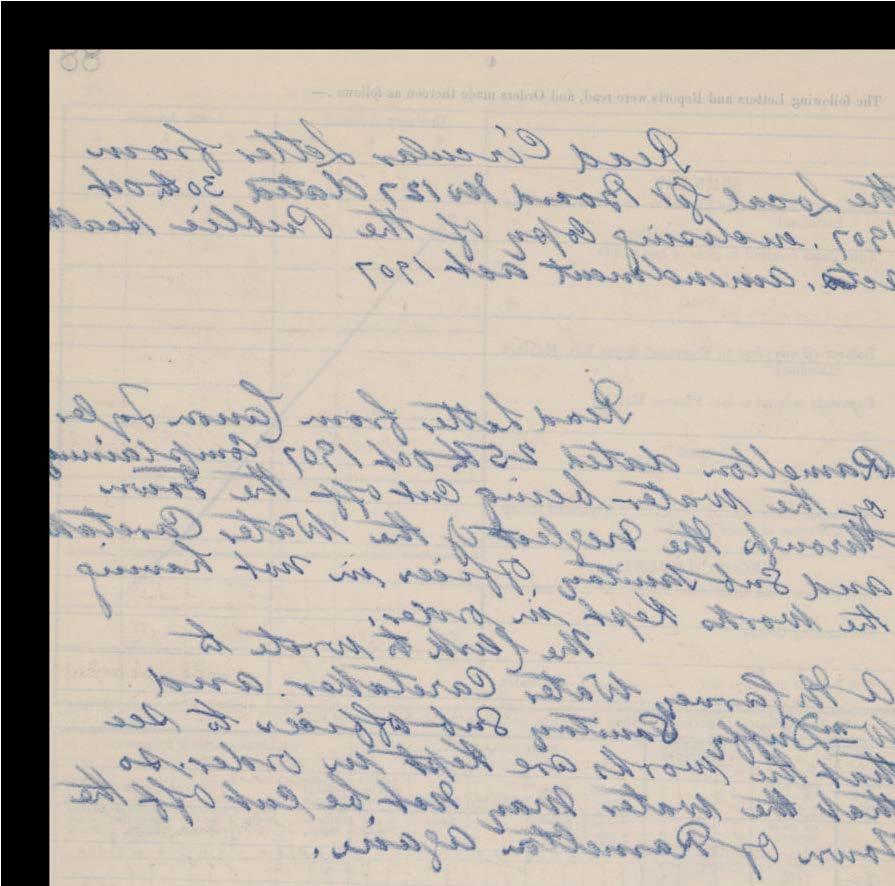 88
4
The following Letters and Reports were read, and Orders made thereon as follows :—
Read Circular Letter from
the Local Gt Board No 127 dated 30th Oct
1907. enclosing Copy of the Public Health
Acts. amendment act 1907
Read Letter from Canon
Ramelton dated 25th Oct 1907 Complaining
of the Water being Cut off the Town
through the Neglect of the Water Caretaker
and Sub Sanitary Officer in not having
the Works Kept in order.
The Clerk to wrote to
Water Caretaker. and
Wm Duffy Sanitary Sub officer to see
that the Works are Kept in order. so
that the Water May Not be Cut off the
Town of Ramelton again.